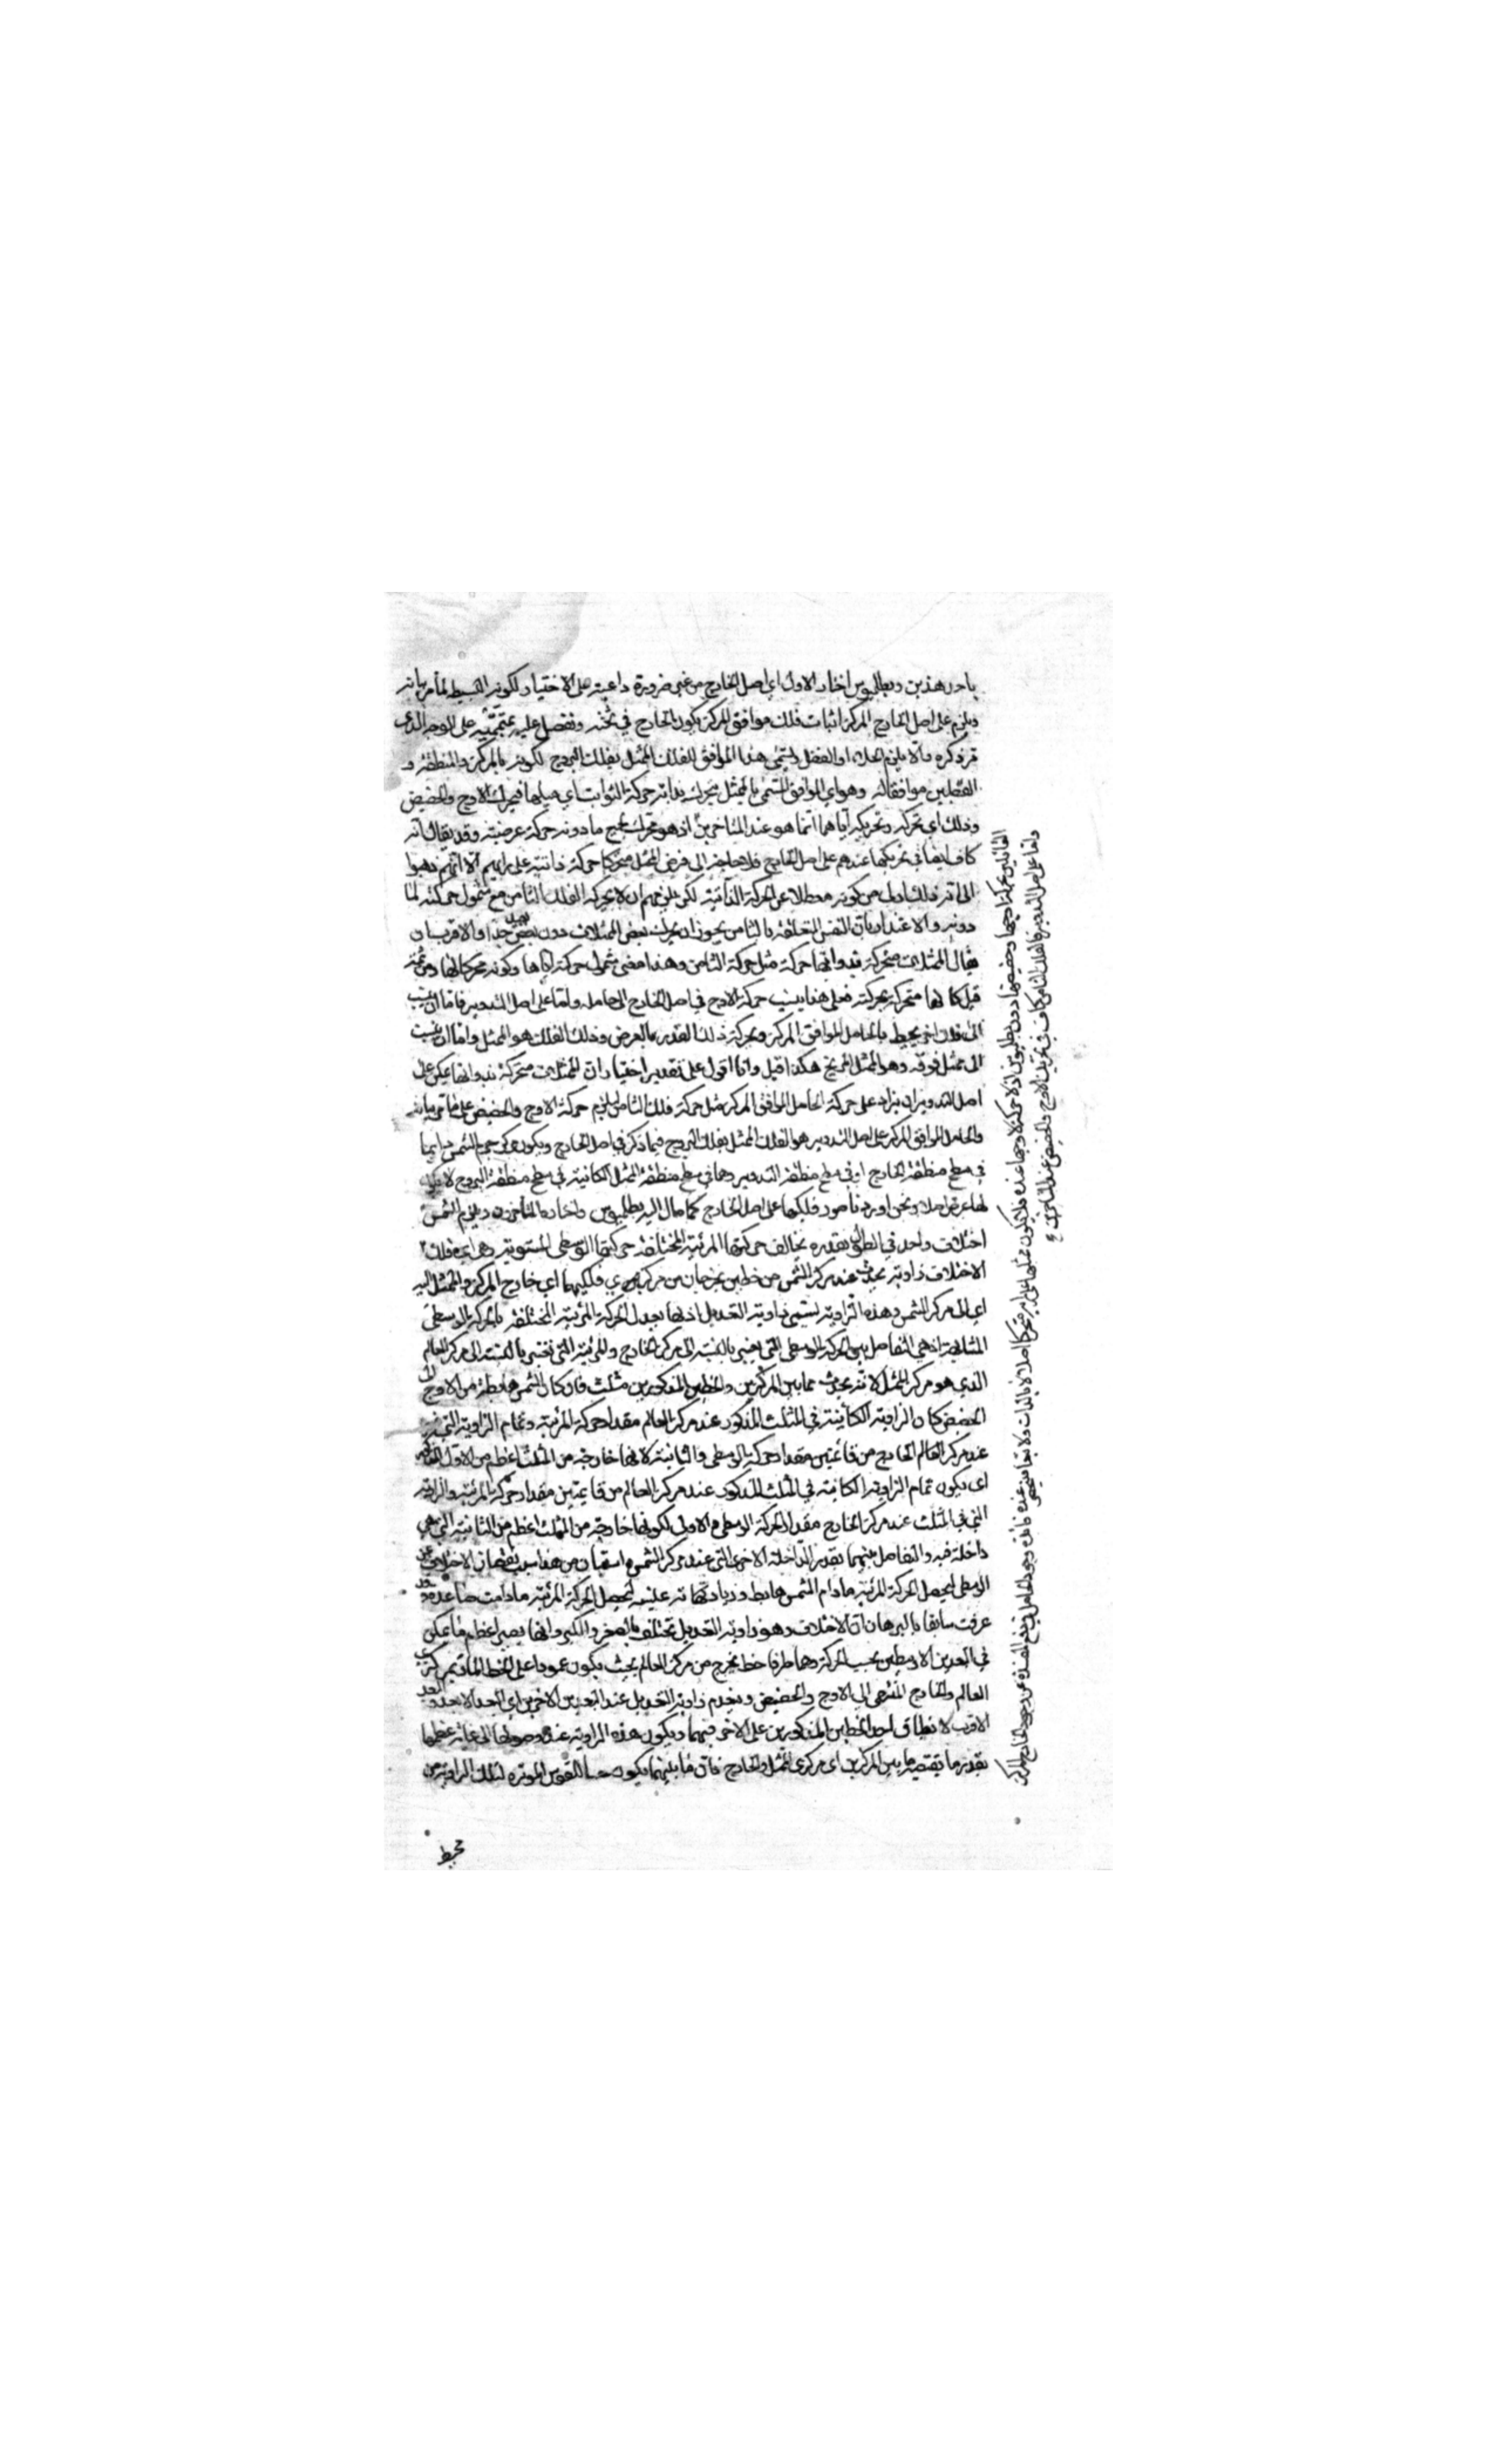 باحد هذين وبطلميوس اختار الاول اي اصل الخارج من غير ضرورة داعية على الاختيار لكونه ابسط لما مر بيانه
ويلزم على اصل الخارج المركز اثبات فلك موافق المركز يكون الخارج في ثخنه وتفصل عليه بمتمميه على الوجه الذي
مر ذكره والا يلزم الخلاء او الفصل ويسمى هذا الموافق الفلك الممثل بفلك البروج لكونه بالمركز والمنطقة و
القطبين موافقا له وهو اي الموافق المسمى بالممثل يتحرك بذاته حركة الثوابت اي مثلها فيحرك الاوج والحضيض
وذلك اي تحركه وتحريكه اياهما انما هو عند المتاخرين اذ هو يتحرك بجميع ما دونه حركة عرضية وقد يقال انه
كاف ايضا في تحريكها عندهم على اصل الخارج فلا حاجة الى فرض الممثل متحركا حركة ذاتية على رايهم الا انهم ذهبوا
الى انه ذلك اولى من كونه معطلا عن الحركة الذاتية لكن يلزمهم ان لا يتحركه الفلك الثامن مع شمول حركته لما
دونه والاعتذار بان النفس المتعلقة بالثامن يجوز ان يحرك بعض الممثلات دون بعض بعيد جدا والاقرب ان
يقال الممثلات متحركة بذواتها حركة مثل حركة الثامن وهذا معنى شمول حركته اياها وكونه محركا لها ومن ثمة
قيل كانها متحركة بحركته فعلى هذا ينسب حركة الاوج في اصل الخارج الى حامله واما على اصل التدوير فاما ان ينسب
الى فلك اخر يحيط بالحامل الموافق المركز ويحركه ذلك القدر بالعرض وذلك الفلك هو الممثل واما ان ينسب
الى ممثل فوقه وهو الممثل المريخ هكذا قيل وانا اقول على تقدير اختيار ان الممثلات متحركة بذواتها يمكن على
اصل التدوير ان يزاد على حركة الحامل الموافق المركز مثل حركة فلك الثامن ليلزم حركة الاوج والحضيض على ما مر بيانه
والحامل الموافق المركز على اصل التدوير هو الفلك الممثل بفلك البروج فيما ذكر في اصل الخارج ويكون مركز جرم الشمس دايما
في سطح منطقة الخارج او في سطح منطقة التدوير وهما في سطح منطقة الممثل الكائنة في سطح منطقة البروج لا يكون
لها عرض اصلا ونحن اوردنا صور فلكيها على اصل الخارج كما مال اليه بطلميوس واختاره المتاخرون ويلزم الشمس
اختلاف واحد في الطول بقدره يخالف حركتها المرئية المختلفة حركتها الوسطى المستوية وهي اي ذلك
الاختلاف زاوية يحدث عند مركز الشمس من خطين يخرجان من مركزي فلكيهما اي خارج المركز والممثل اليه
اي الى مركز الشمس وهذه الزاوية تسمى زاوية التعديل اذ بها يعدل الحركة المرئية المختلفة بالحركة الوسطى
المتشابهة اذ هي التفاضل بين الحركة الوسطى التي تعتبر بالنسبة الى مركز الخارج والمرئية التي تعتبر بالنسبة الى مركز العالم
الذي هو مركز الممثل لانه يحدث مما بين المركزين والخطين المذكورين مثلث فان كان الشمس هابطة من الاوج الى
الحضيض كان الزاوية الكائنة في المثلث المذكور عند مركز العالم مقدار حركة المرئية وتمام الزاوية التي
عند مركز العالم الخارج من قائمتين مقدار حركة الوسطى والثانية لانها خارجة من المثلث اعظم من الاولى
اي يكون تمام الزاوية الكائنة في المثلث المذكور عند مركز العالم من قايمتين مقدار حركة المرئية والزاوية
التي في المثلث عند مركز الخارج مقدار الحركة الوسطى والاولى لكونها خارجة من المثلث اعظم من الثانية التي هي
داخلة فيه والتفاضل بينهما بقدر الداخلة الاخرى التي عند مركز الشمس استبان من هذا سبب نقصان الاختلاف عن
الوسطى ليحصل الحركة المرئية ما دام الشمس هابط وزيادتها عليه لتحصل الحركة المرئية ما دامت صاعدة وقد
عرفت سابقا بالبرهان ان الاختلاف وهو زاوية التعديل تختلف بالصغر والكبر وانها يصير اعظم ما يمكن
في البعدين الاوسطين بحسب الحركة وهما طرفا خط يخرج من مركز العالم بحيث يكون عمودا على الخط المار بمركزي
العالم والخارج المنتهي الى الاوج والحضيض وينعدم زاوية التعديل عند البعدين الاخرين اي البعد الابعد والبعد
الاقرب لانطباق احد الخطين المذكورين على الاخر فيهما ويكون هذه الزاوية عند وصولها الى غاية عظمها
بقدر ما يقتضيه ما بين المركزين اي مركزي الممثل والخارج فان ما بينهما يكون القوس الموترة لتلك الزاوية من
محيط
القائلين بحركة اوجها وحضيضها دون بطلميوس اذ لا حركة لاوجها عنده فلا يكون ممثلها على رايه متحركا اصلا لا بالذات ولا بتبعا
واما على اصل التدوير فالفلك الثامن كاف في تحريك الاوج والحضيض عند المتاخرين